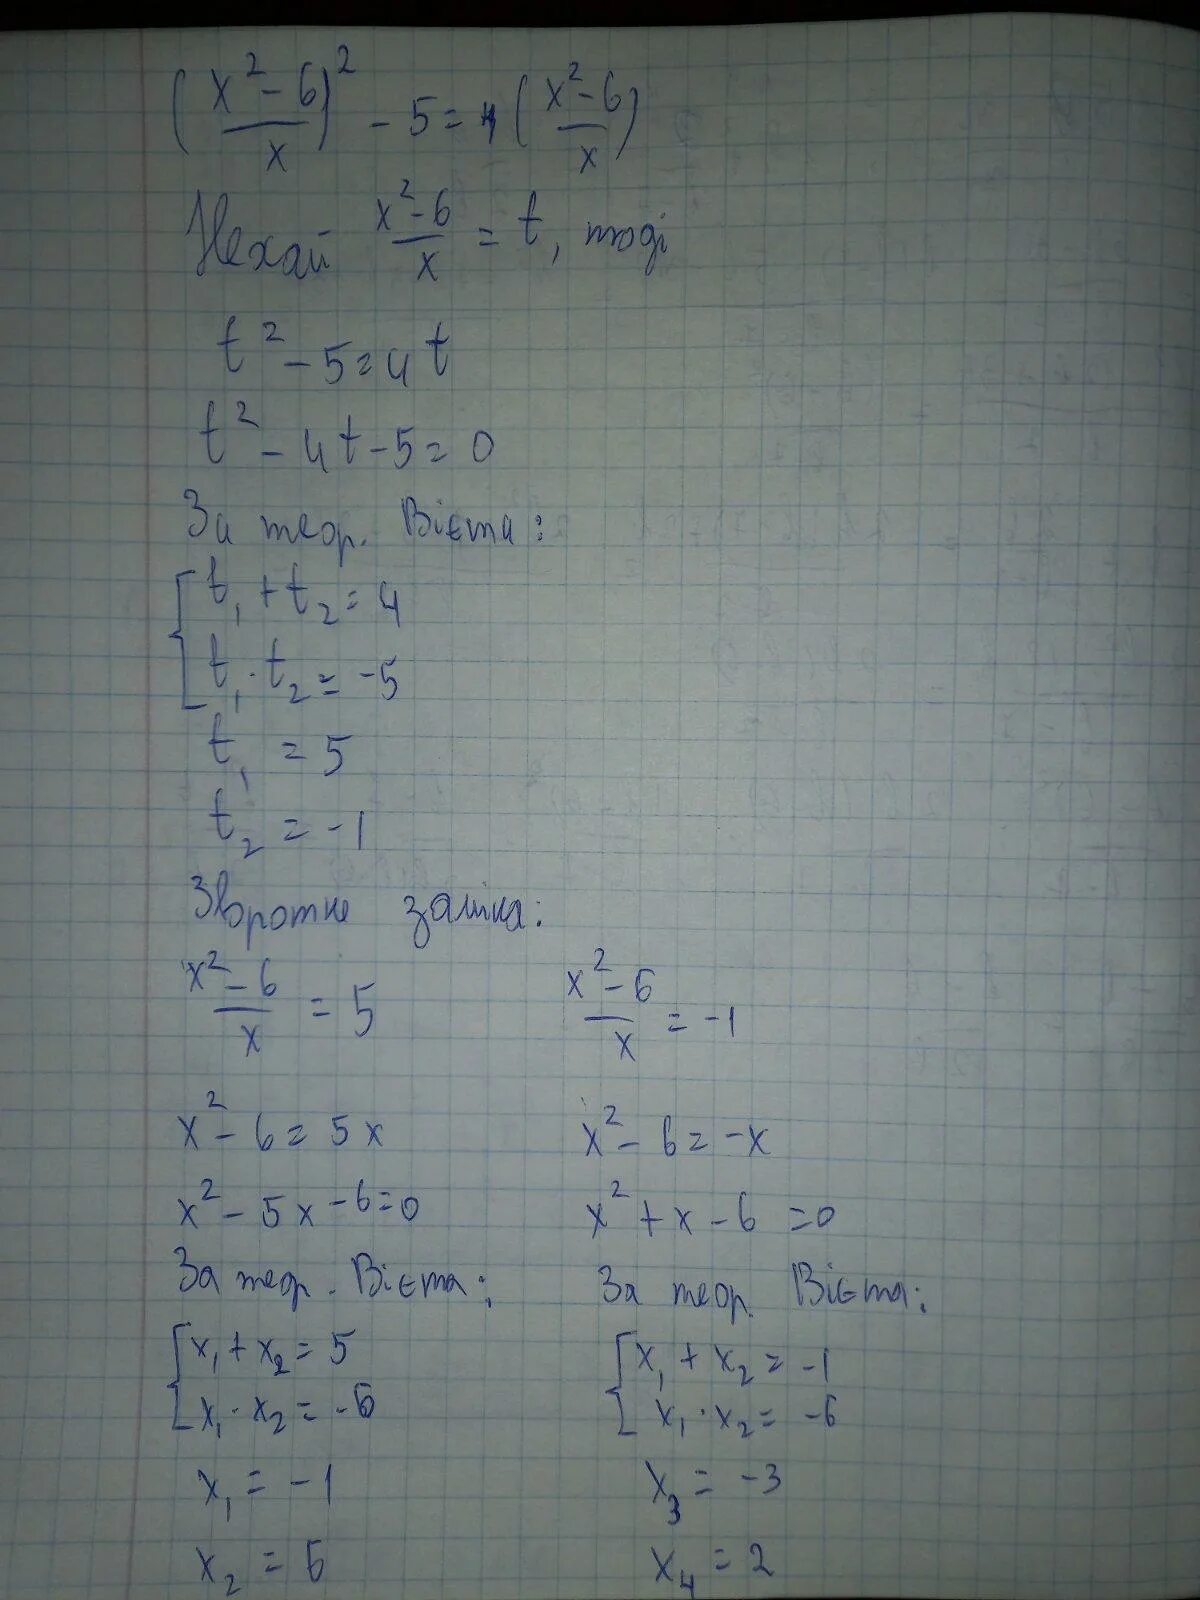 (x² - 6 / x)² - 5 = 4 (x² - 6 / x)
Нехай x² - 6 / x = t, тоді
t² - 5 = 4t
t² - 4t - 5 = 0
За теор. Вієта:
{ t₁ + t₂ = 4
t₁ · t₂ = -5
t₁ = 5
t₂ = -1
Зворотня заміна:
x² - 6 / x = 5
x² - 6 = 5x
x² - 5x - 6 = 0
За теор. Вієта:
{ x₁ + x₂ = 5
x₁ · x₂ = -6
x₁ = -1
x₂ = 6
x² - 6 / x = -1
x² - 6 = -x
x² + x - 6 = 0
За теор. Вієта:
{ x₁ + x₂ = -1
x₁ · x₂ = -6
x₃ = -3
x₄ = 2